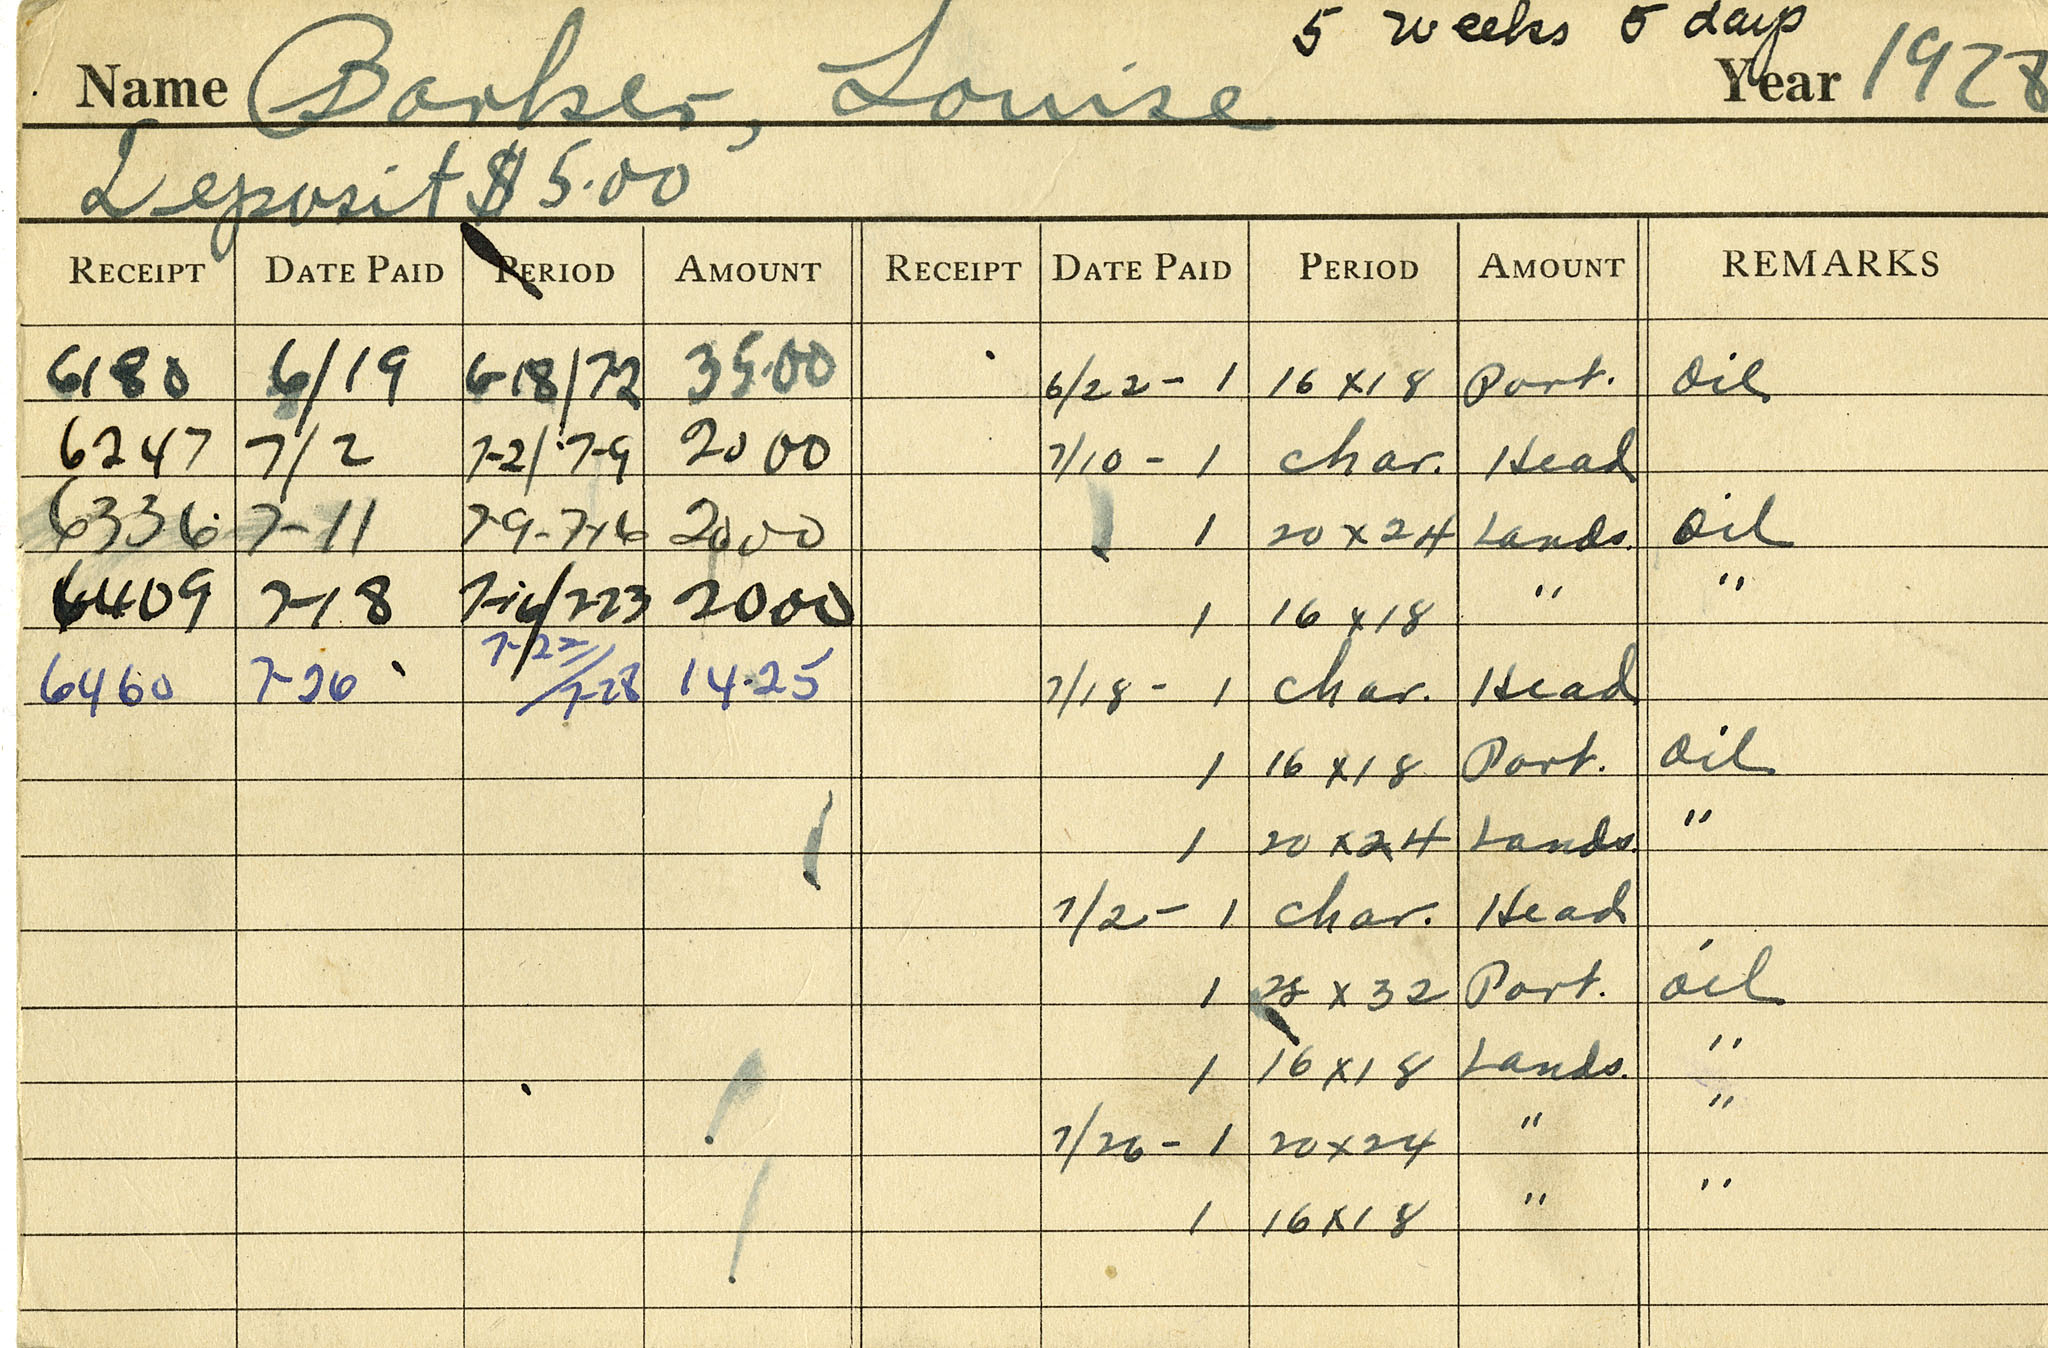 5 weeks 5 days
Name Barker, Louise Year 1928
Deposit $5.00
RECEIPT DATE PAID PERIOD AMOUNT RECEIPT DATE PAID PERIOD AMOUNT REMARKS
6180 6/19 6-18/7-2 35.00 6/22 - 1 16 x 18 Port. Oil
6247 7/2 7-2/7-9 20 00 7/10 - 1 Char. Head
6336 7-11 7-9-7-16 20 00 1 20 x 24 Lands. Oil
6409 7-18 7-16/7-23 20 00 1 16 x 18 " "
6460 7-26 7-22/7-28 14.25 7/18 - 1 Char. Head
1 16 x 18 Port. Oil
1 20 x 24 Lands. "
7/2 - 1 Char. Head
1 28 x 32 Port. Oil
1 16 x 18 Lands. "
7/26 - 1 20 x 24 " "
1 16 x 18 " "